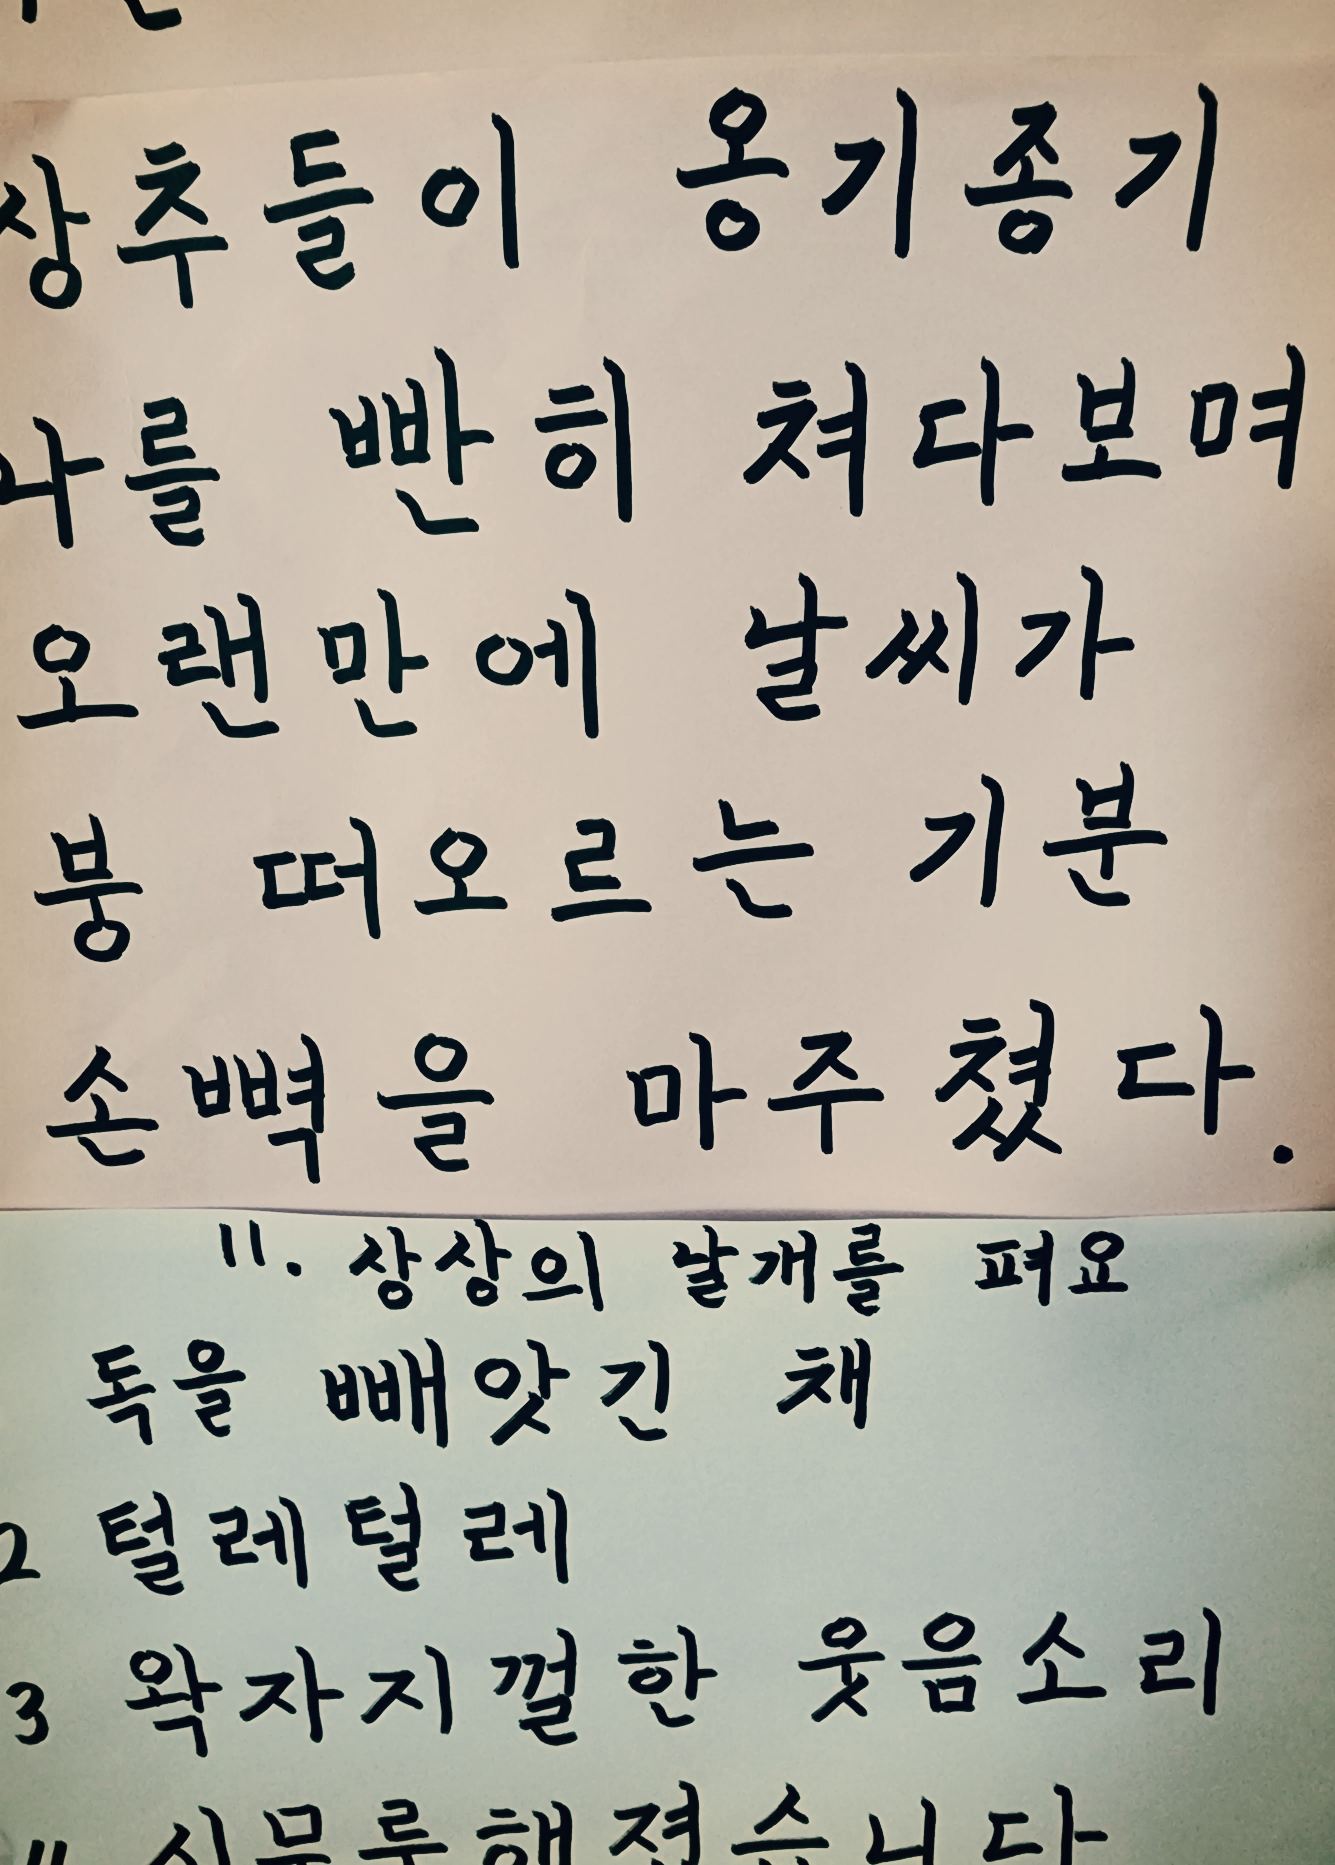 상추들이 옹기종기
나를 빤히 쳐다보며
오랜만에 날씨가
붕 떠오르는 기분
손뼉을 마주쳤다.
11. 상상의 날개를 펴요
독을 빼앗긴 채
2 털레털레
3 왁자지껄한 웃음소리
시무룩해졌습니다